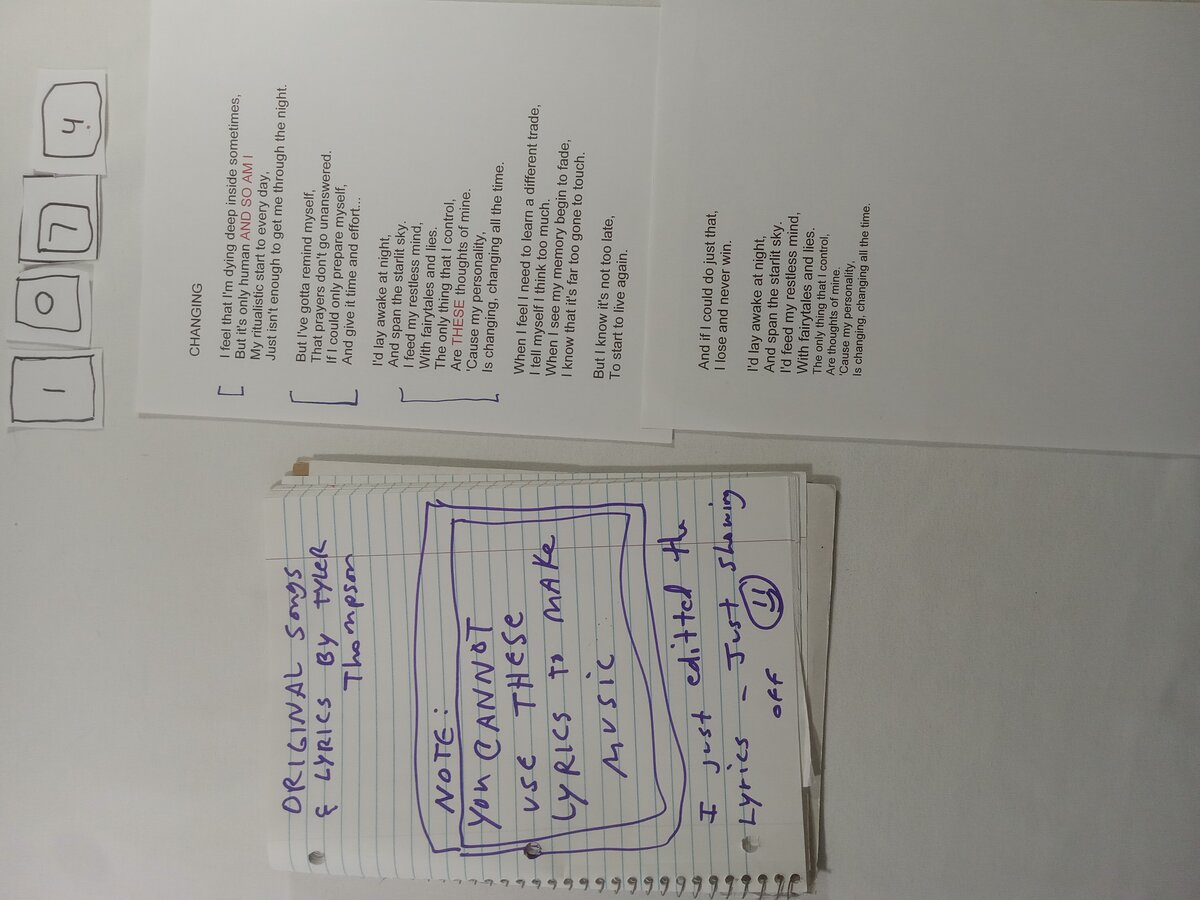 1 0 7 4.
CHANGING
I feel that I'm dying deep inside sometimes,
But it's only human AND SO AM I
My ritualistic start to every day,
Just isn't enough to get me through the night.
But I've gotta remind myself,
That prayers don't go unanswered.
If I could only prepare myself,
And give it time and effort...
I'd lay awake at night,
And span the starlit sky.
I feed my restless mind,
With fairytales and lies.
The only thing that I control,
Are THESE thoughts of mine.
'Cause my personality,
Is changing, changing all the time.
When I feel I need to learn a different trade,
I tell myself I think too much.
When I see my memory begin to fade,
I know that it's far too gone to touch.
But I know it's not too late,
To start to live again.
And if I could do just that,
I lose and never win.
I'd lay awake at night,
And span the starlit sky.
I'd feed my restless mind,
With fairytales and lies.
The only thing that I control,
Are thoughts of mine.
'Cause my personality,
Is changing, changing all the time.
ORIGINAL Songs
& LYRICS BY TYLER
Thompson
NOTE:
YOU CANNOT
USE THESE
LYRICS TO MAKE
MUSIC
I just editted the
Lyrics - Just showing
OFF